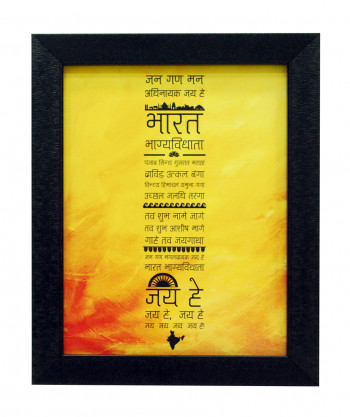 जन गण मन
अधिनायक जय हे
भारत
भाग्यविधाता
पंजाब सिन्ध गुजरात मराठा
द्राविड़ उत्कल बंगा
विन्ध्य हिमाचल यमुना गंगा
उच्छल जलधि तरंगा
तव शुभ नामे जागे
तव शुभ आशीष मांगे
गाहे तव जयगाथा
जन गण मंगलदायक जय हे
भारत भाग्यविधाता
जय हे
जय हे, जय हे
जय जय जय, जय हे!